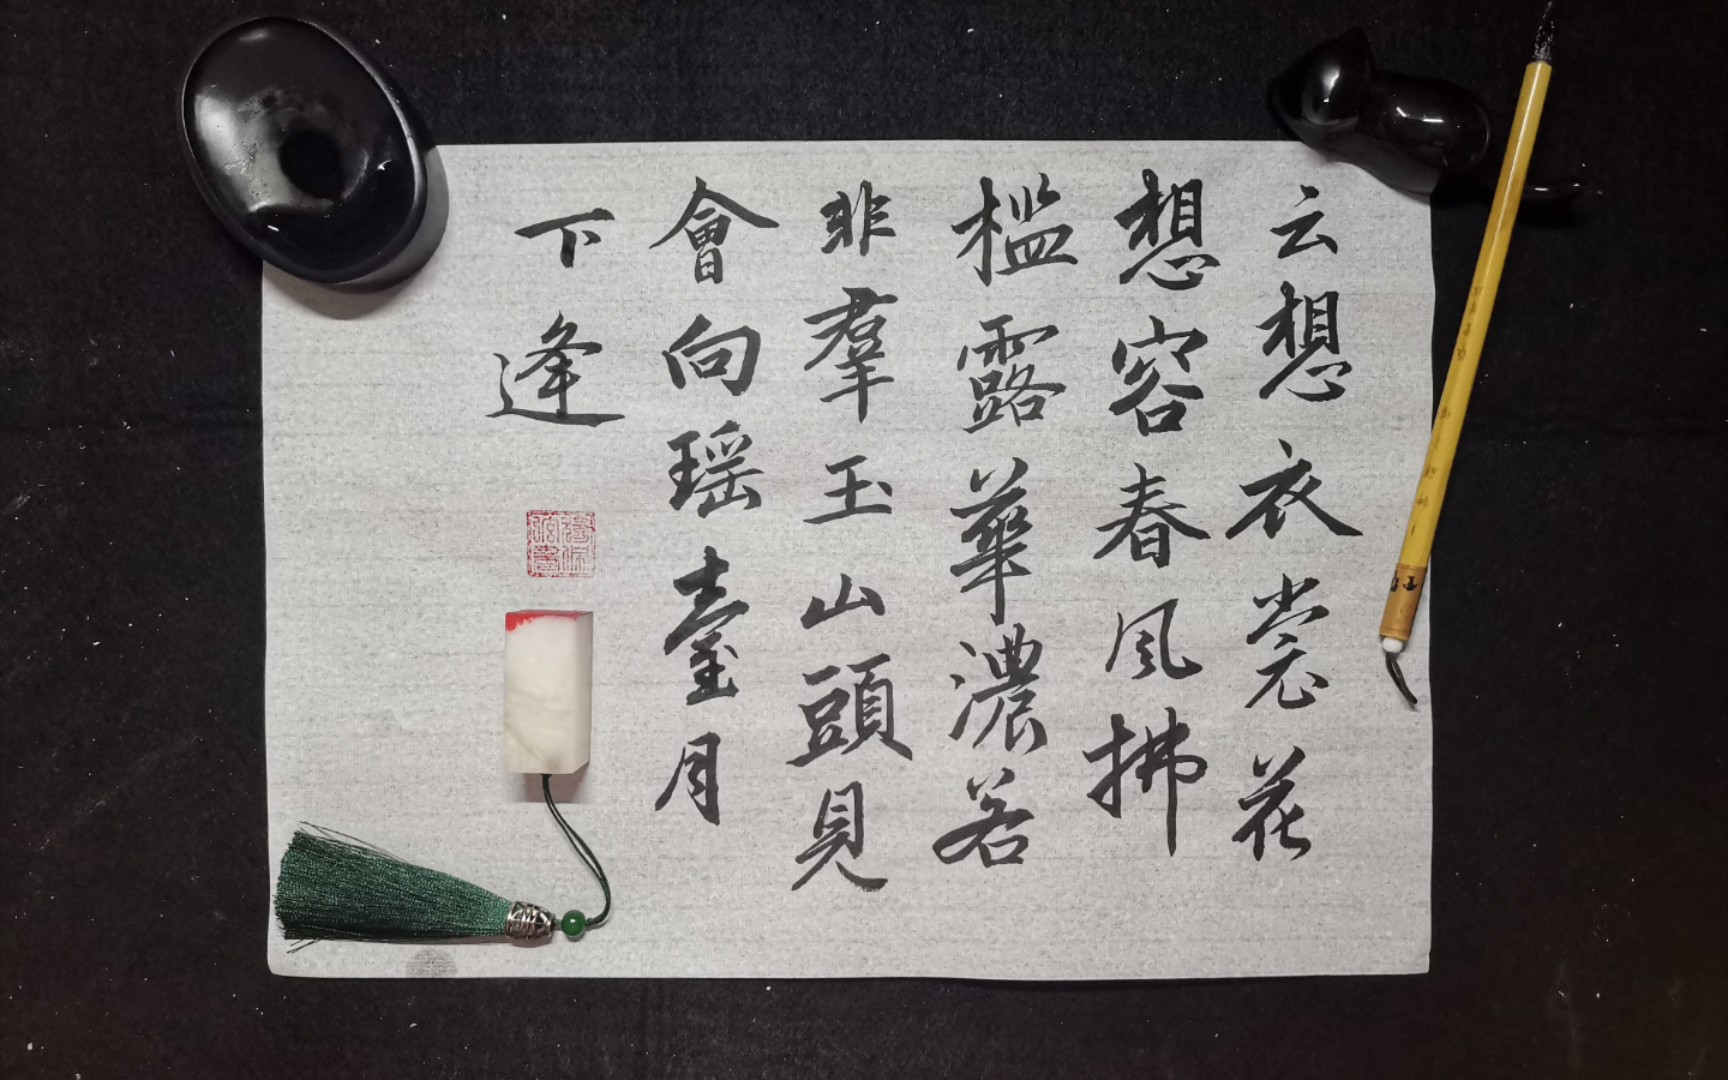 云想衣裳花
想容春风拂
槛露華濃若
非羣玉山頭見
會向瑶臺月
下逢